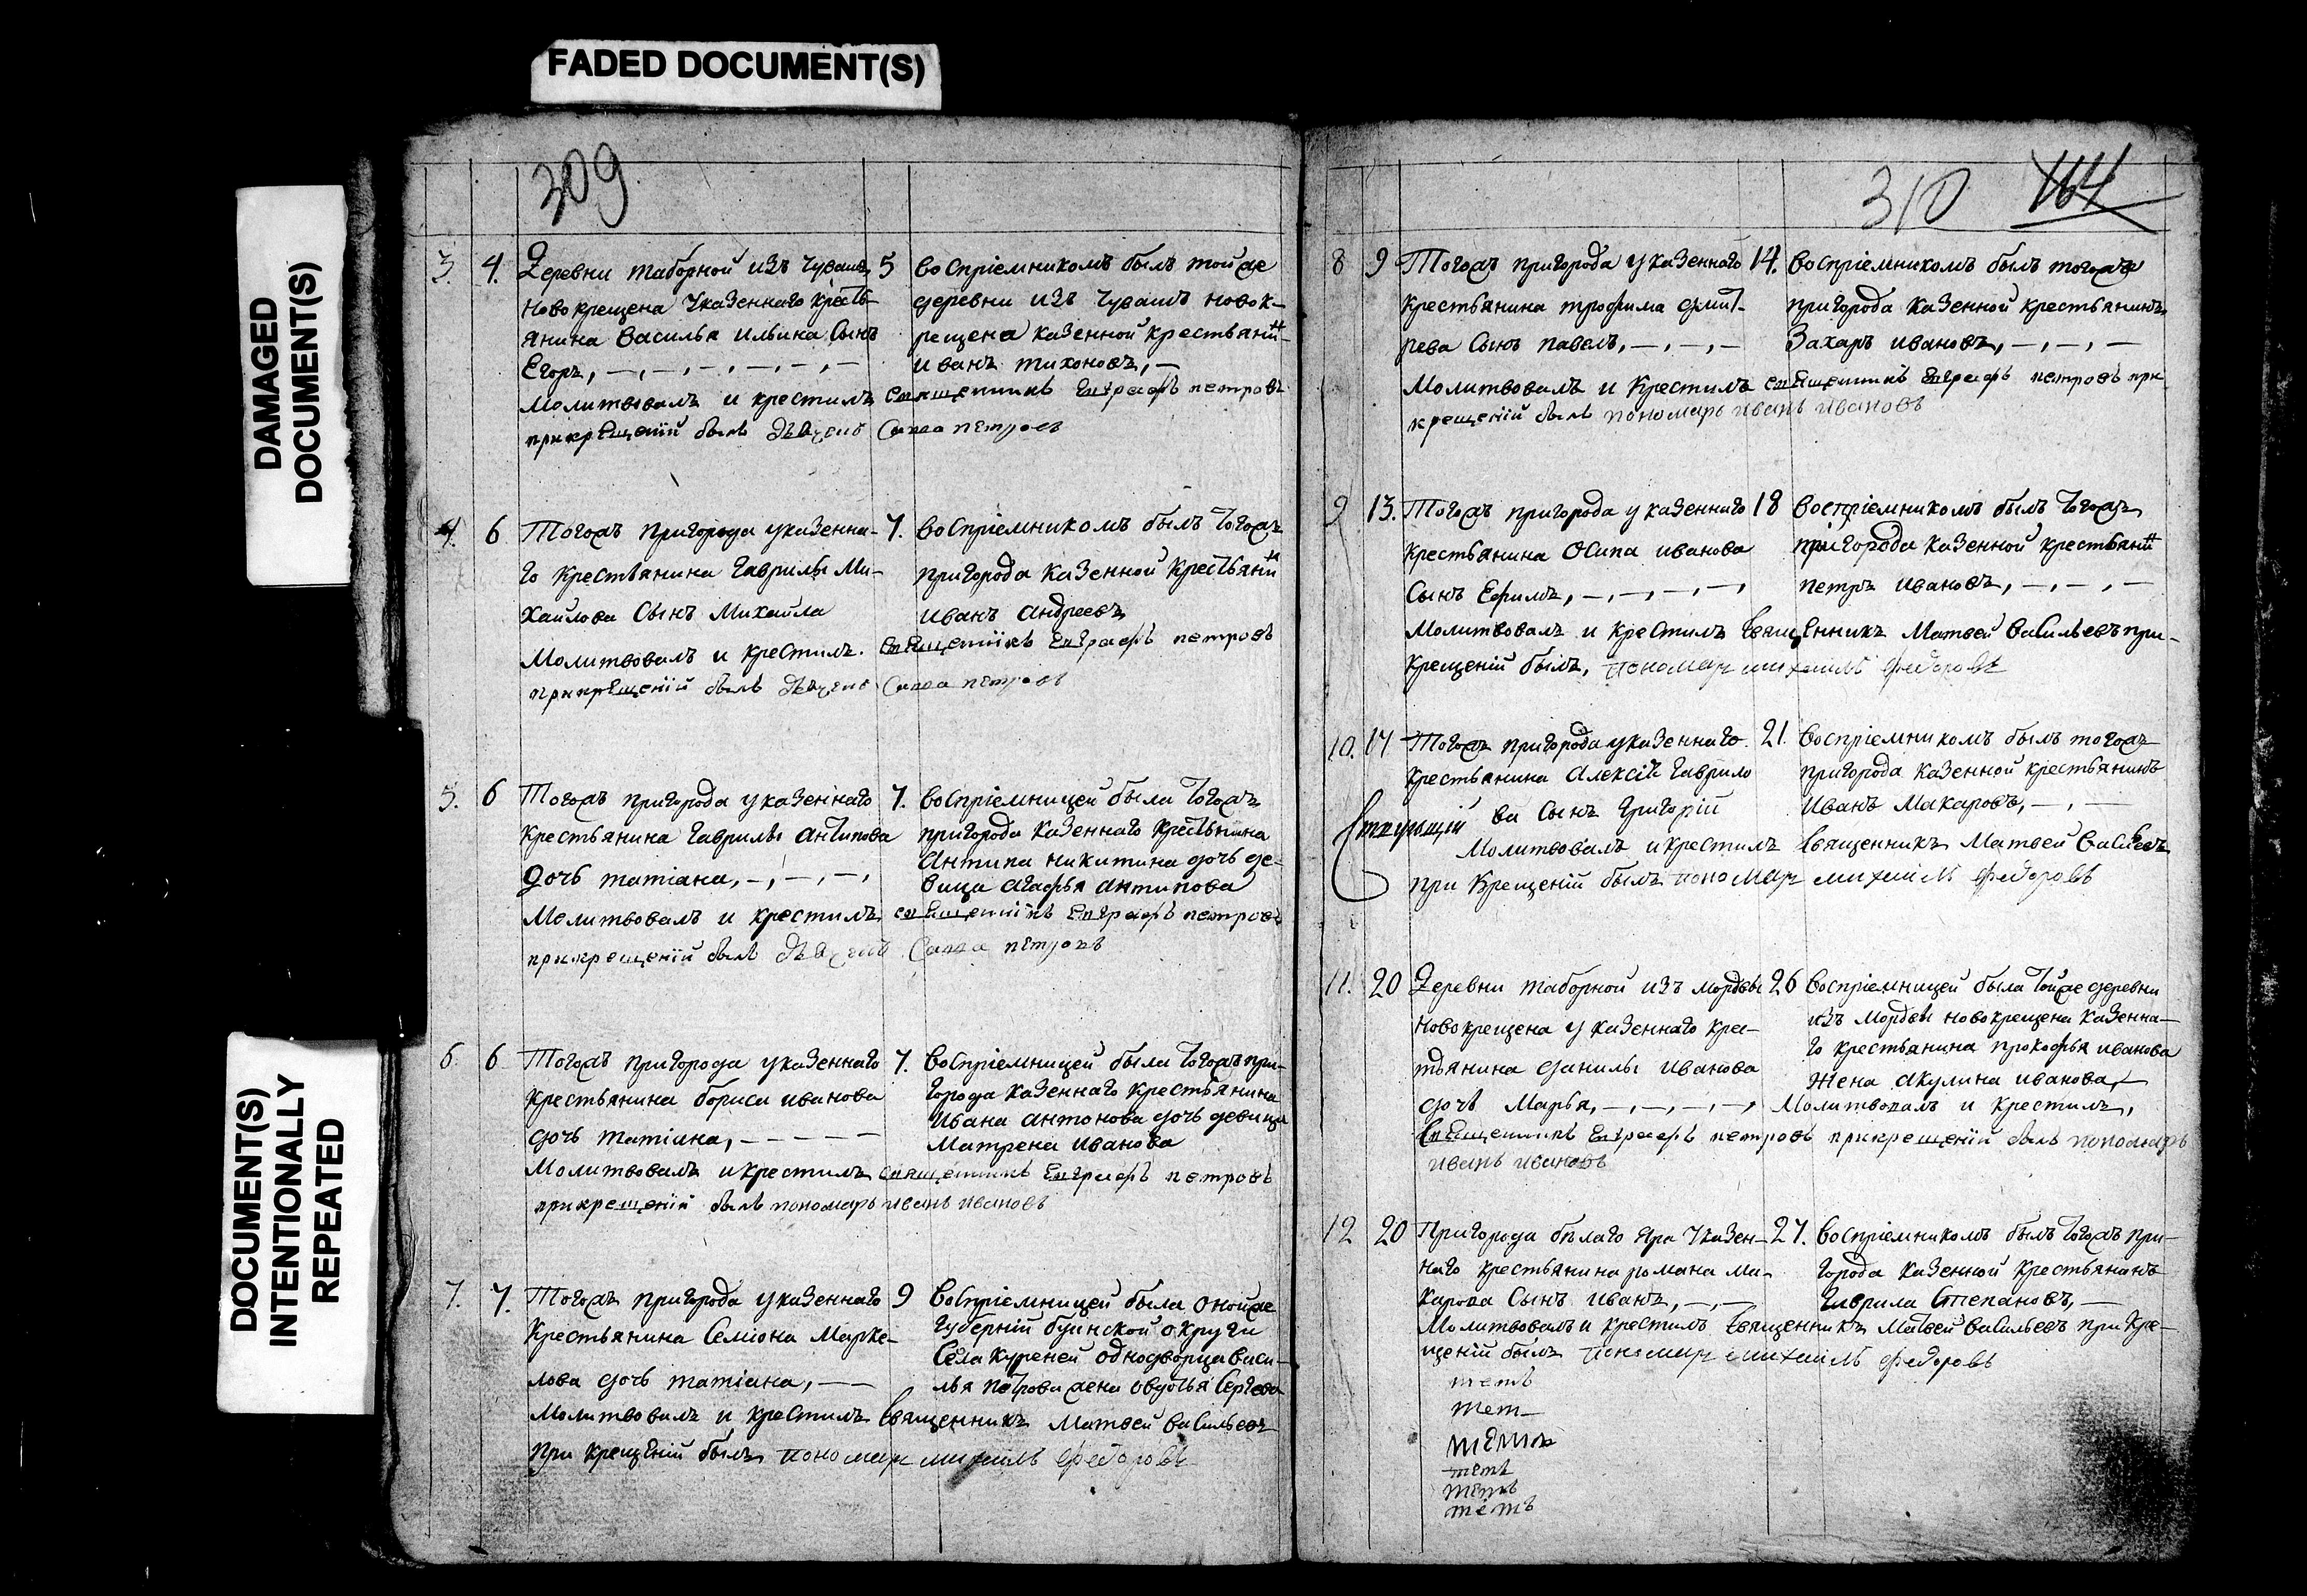 FADED DOCUMENT(S)
DAMAGED
DOCUMENT(S)
DOCUMENT(S)
INTENTIONALLY
REPEATED
309
3. 4. Деревни таборной изъ чувашъ
новокрещена указеннаго кресть-
янина Василья ильина Сынъ
Егоръ, —,—,—,—,—,—
5 восприемникомъ былъ тойже
деревни изъ чувашъ новок-
рещена казенной крестьянинъ
иванъ тихоновъ, —
Молитвовалъ и крестилъ священникъ Евграфъ петровъ
прикрещенïи былъ дьяченъ Савва петровъ
4. 6 Тогожъ пригорода указенна-
го крестьянина гаврилы Ми-
хайлова Сынъ Михайла
7. восприемникомъ былъ тогожъ
пригорода казенной крестьянинъ
иванъ андреевъ
Молитвовалъ и крестилъ. священникъ Евграфъ петровъ
прикрещенïи былъ дьяченъ Савва петровъ
5. 6 Тогожъ пригорода указеннаго
крестьянина гаврилы антипова
дочь татiана, —,—,—,
7. восприемницей была тогожъ
пригорода казеннаго крестьянина
антипа никитина дочь де-
вица агафья антипова
Молитвовалъ и крестилъ священникъ Евграфъ петровъ
прикрещенïи былъ дьяченъ Савва петровъ
6. 6 Тогожъ пригорода указеннаго
крестьянина бориса иванова
дочь татiана, — — — — —
7. восприемницей была тогожъ при-
города казеннаго крестьянина
ивана антонова дочь девица
Матрена иванова
Молитвовалъ и крестилъ священникъ Евграфъ петровъ
прикрещенïи былъ пономарь иванъ ивановъ
7. 7. Тогожъ пригорода указеннаго
крестьянина Семiона Марке-
лова дочь татiана, — —
9 восприемницей была онойже
губернïи буинской округи
Села куреней однодворца васи-
лья петрова жена овдотья Сергева
Молитвовалъ и крестилъ Священникъ Матвей васильевъ
при крещенïи былъ пономарь михаилъ федоровъ
310 164
8 9 Тогожъ пригорода указеннаго
крестьянина трофима дмит-
рева Сынъ павелъ, —,—,—
14. восприемникомъ былъ тогожъ
пригорода казенной крестьянинъ
Захаръ ивановъ, —,—,—
Молитвовалъ и крестилъ священникъ Евграфъ петровъ при
крещенïи былъ пономарь иванъ ивановъ
9 13. Тогожъ пригорода указеннаго
крестьянина осипа иванова
Сынъ Ефимъ, —,—,—,—,
18 восприемникомъ былъ тогожъ
пригорода казенной крестьянинъ
петръ ивановъ, —,—,—
Молитвовалъ и крестилъ Священникъ Матвей васильевъ при-
крещенïи былъ, пономарь михаилъ федоровъ
10. 17 Тогожъ пригорода указеннаго
крестьянина алексiй гаврило
ва Сынъ григорiй
21. восприемникомъ былъ тогожъ
пригорода казенной крестьянинъ
иванъ Макаровъ, —,—
Молитвовалъ и крестилъ Священникъ Матвей васильевъ
при крещенïи былъ пономарь михаилъ федоровъ
11. 20 Деревни таборной изъ мордвы
новокрещена указеннаго крес-
тьянина данилы иванова
дочь Марья, —,—,—,—,
26 восприемницей была тойже деревни
изъ мордвы новокрещена казенна-
го крестьянина прокофья иванова
жена акулина иванова, —
Молитвовалъ и крестилъ,
священникъ Евграфъ петровъ прикрещенïи былъ пономарь
иванъ ивановъ
12 20 Пригорода белаго яра указен-
наго крестьянина романа ма-
карова Сынъ иванъ, —,—
27. восприемникомъ былъ тогожъ при-
города казенной крестьянинъ
гаврила Степановъ, —
Молитвовалъ и крестилъ Священникъ Матвей васильевъ при кре-
щенïи былъ пономарь михаилъ федоровъ